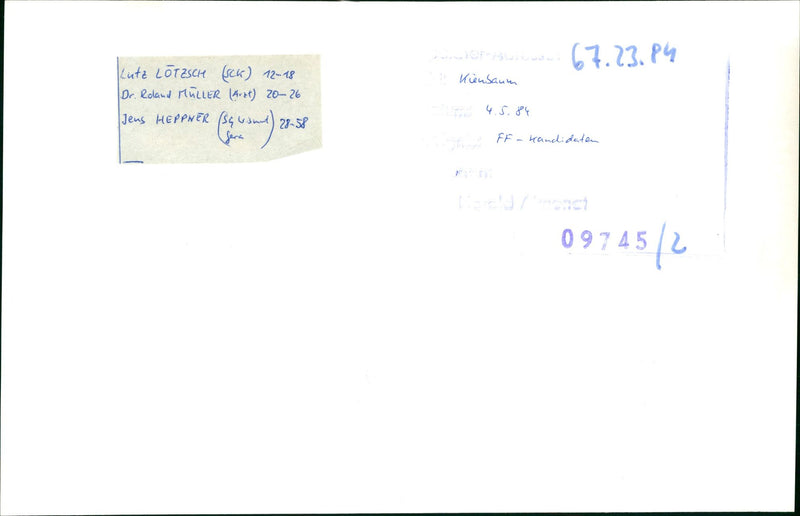 Lutz LÖTZSCH (SCK) 12-18
Dr. Roland MÜLLER (Arzt) 20-26
Jens HEPPNER (SG Wismut Gera) 28-58
67.23.84
Kienbaum
4.5.84
FF-Kandidaten
09745/2